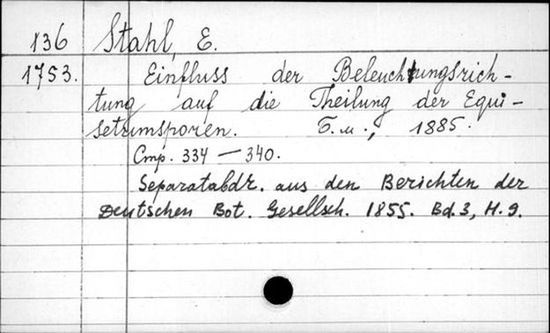 136 Stahl, E.
1753. Einfluss der Beleuchtungsrich-
tung auf die Theilung der Equi-
setumsporen. Б.м., 1885.
Стр. 334 — 340.
Separatabdr. aus den Berichten der
Deutschen Bot. Gesellsch. 1855. Bd.3, H.9.